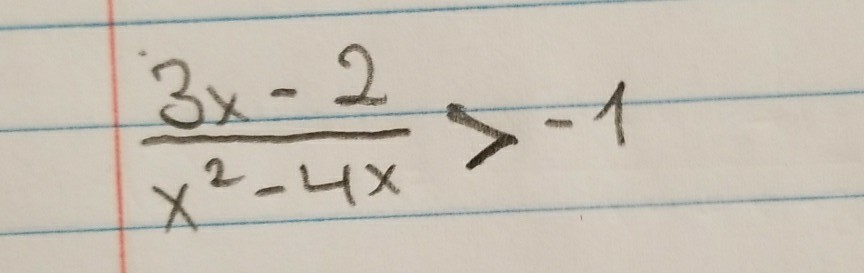 3x - 2
x² - 4x > -1